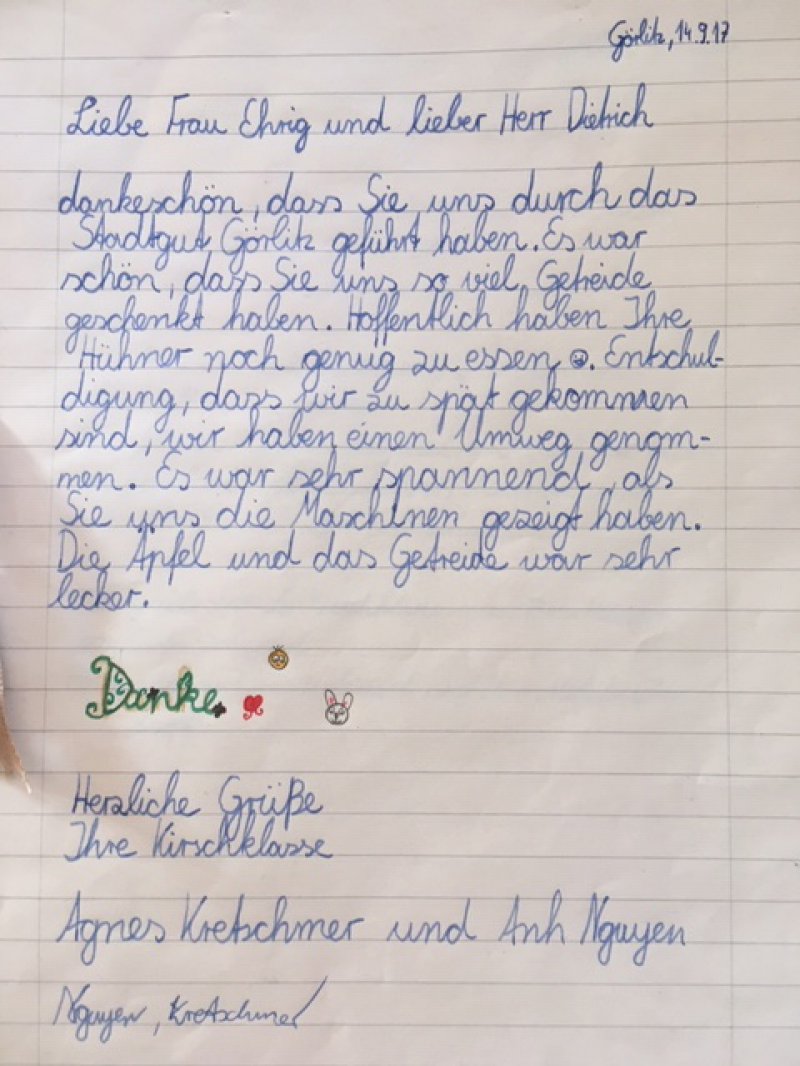 Görlitz, 14.9.17
Liebe Frau Ehrig und lieber Herr Dietrich
dankeschön, dass Sie uns durch das
Stadtgut Görlitz geführt haben. Es war
schön, dass Sie uns so viel Getreide
geschenkt haben. Hoffentlich haben Ihre
Hühner noch genug zu essen ☺. Entschul-
digung, dass wir zu spät gekommen
sind, wir haben einen Umweg gengm-
men. Es war sehr spannend, als
Sie uns die Maschinen gezeigt haben.
Die Äpfel und das Getreide war sehr
lecker.
Danke
Herzliche Grüße
Ihre Kirschklasse
Agnes Kretschmer und Anh Nguyen
Nguyen, Kretschmer